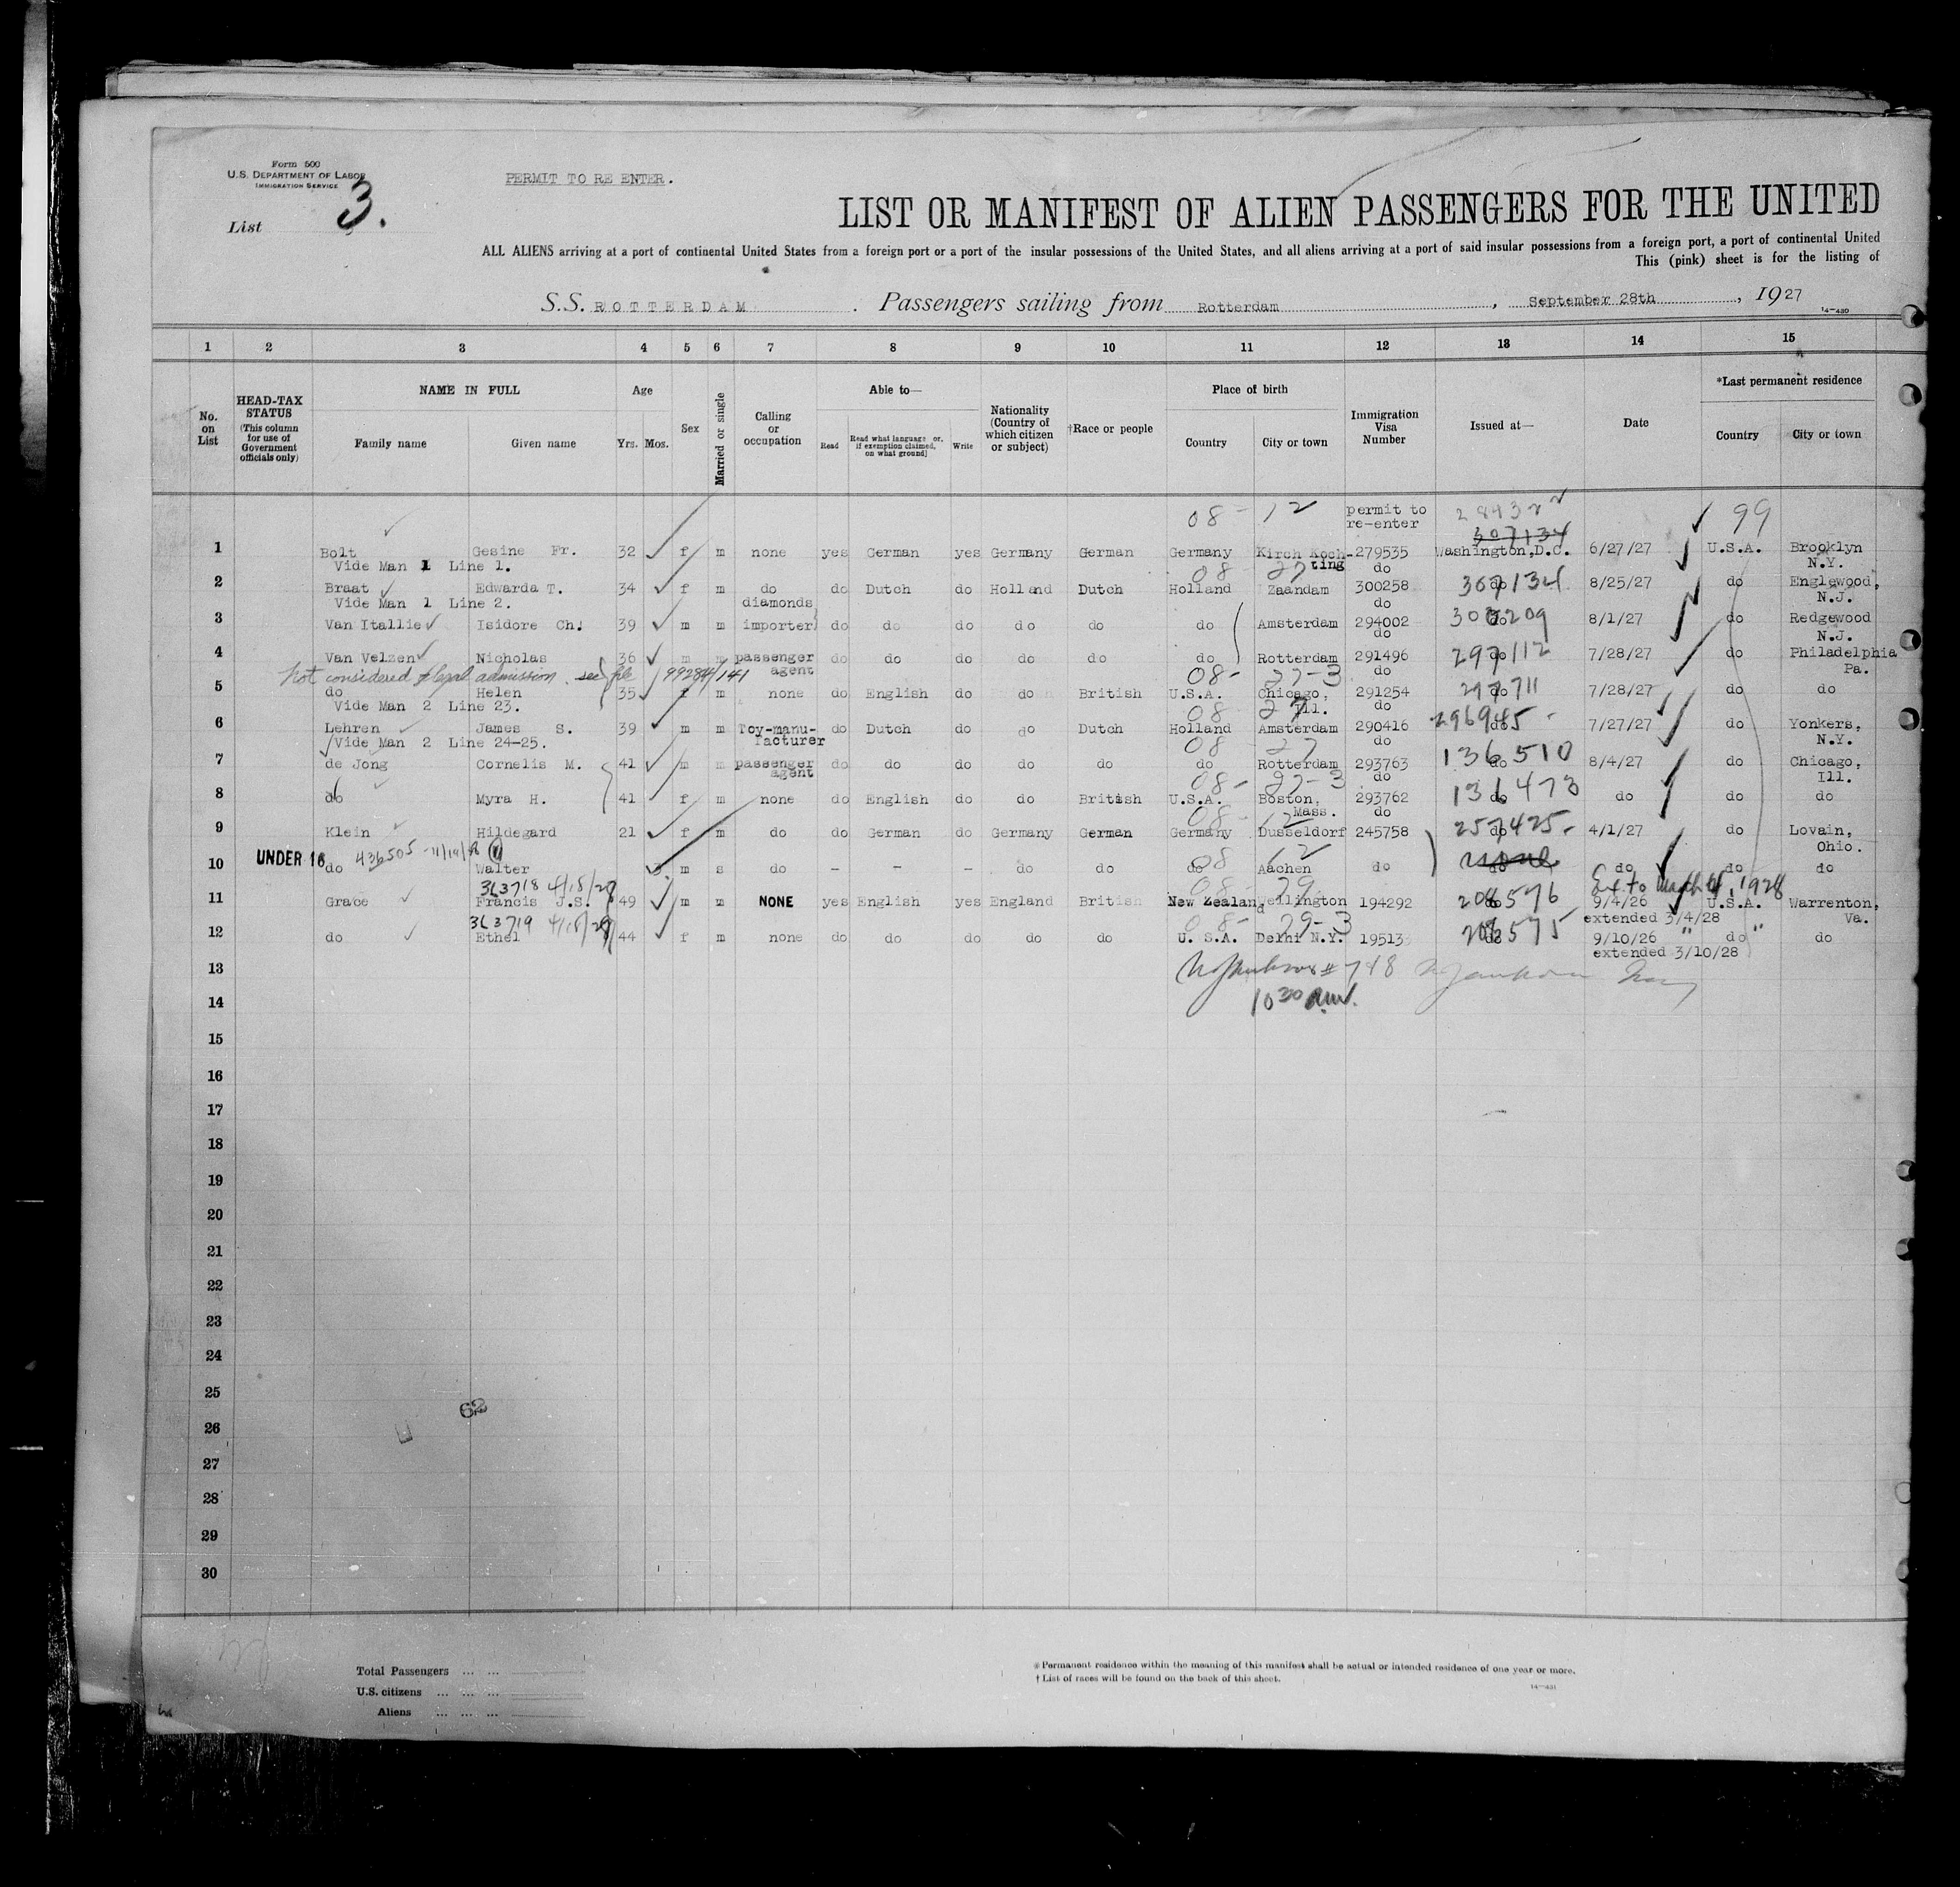 Form 500
U.S. DEPARTMENT OF LABOR
IMMIGRATION SERVICE
PERMIT TO RE ENTER.
List 3.
LIST OR MANIFEST OF ALIEN PASSENGERS FOR THE UNITED
ALL ALIENS arriving at a port of continental United States from a foreign port or a port of the insular possessions of the United States, and all aliens arriving at a port of said insular possessions from a foreign port, a port of continental United
This (pink) sheet is for the listing of
S.S. ROTTERDAM. Passengers sailing from Rotterdam, September 28th, 1927
14-430
1 2 3 4 5 6 7 8 9 10 11 12 13 14 15
No. on List
HEAD-TAX STATUS (This column for use of Government officials only)
NAME IN FULL Family name Given name
Age Yrs. Mos.
Sex
Married or single
Calling or occupation
Able to— Read Read what language or, if exemption claimed, on what ground] Write
Nationality (Country of which citizen or subject)
†Race or people
Place of birth Country City or town
Immigration Visa Number
Issued at—
Date
*Last permanent residence Country City or town
08- 12 permit to re-enter 99
307134
1 Bolt Gesine Fr. 32 f m none yes German yes Germany German Germany Kirch Kochting 279535 Washington,D.C. 6/27/27 U.S.A. Brooklyn N.Y.
Vide Man 1 Line 1. 08 27 do
2 Braat Edwarda T. 34 f m do do Dutch do Holland Dutch Holland Zaandam 300258 do 307134 8/25/27 do Englewood, N.J.
Vide Man 1 Line 2. do
3 Van Itallie Isidore Ch. 39 m m diamonds importer do do do do do do Amsterdam 294002 do 8/1/27 do Redgewood N.J.
do
4 Van Velzen Nicholas 36 m m passenger agent do do do do do do Rotterdam 291496 do 7/28/27 do Philadelphia Pa.
Not considered legal admission. see file 99284/141 08- 27-3 do
5 do Helen 35 f m none do English do do British U.S.A. Chicago, Ill. 291254 do 297711 7/28/27 do do
Vide Man 2 Line 23. 08 27 do
6 Lehren James S. 39 m m Toy-manufacturer do Dutch do do Dutch Holland Amsterdam 290416 296945 7/27/27 do Yonkers, N.Y.
Vide Man 2 Line 24-25. 08 27 do
7 de Jong Cornelis M. 41 m m passenger agent do do do do do do Rotterdam 293763 do 136510 8/4/27 do Chicago, Ill.
08- 27-3 do
8 do Myra H. 41 f m none do English do do British U.S.A. Boston, Mass. 293762 do 136473 do do do
08- 12 do
9 Klein Hildegard 21 f m do do German do Germany German Germany Dusseldorf 245758 do 257425 4/1/27 do Lovain, Ohio.
UNDER 16 436505 08 12
10 do Walter 3 m s do - - - do do do Aachen do none do do do
363718 4/18/28 08- 29 Ext to March 4, 1928
11 Grace Francis J.S. 49 m m NONE yes English yes England British New Zealand Wellington 194292 do 206576 9/4/26 U.S.A. Warrenton, Va.
extended 3/4/28
363719 4/18/28 08- 29-3
12 do Ethel 44 f m none do do do do do U. S.A. Delhi N.Y. 19513 do 206575 9/10/26 do do
extended 3/10/28
13
14 10 30 am.
15
16
17
18
19
20
21
22
23
24
25
26
27
28
29
30
62
Total Passengers ... ...
U.S. citizens ... ... ...
Aliens ... ... ...
* Permanent residence within the meaning of this manifest shall be actual or intended residence of one year or more.
† List of races will be found on the back of this sheet.
14-431